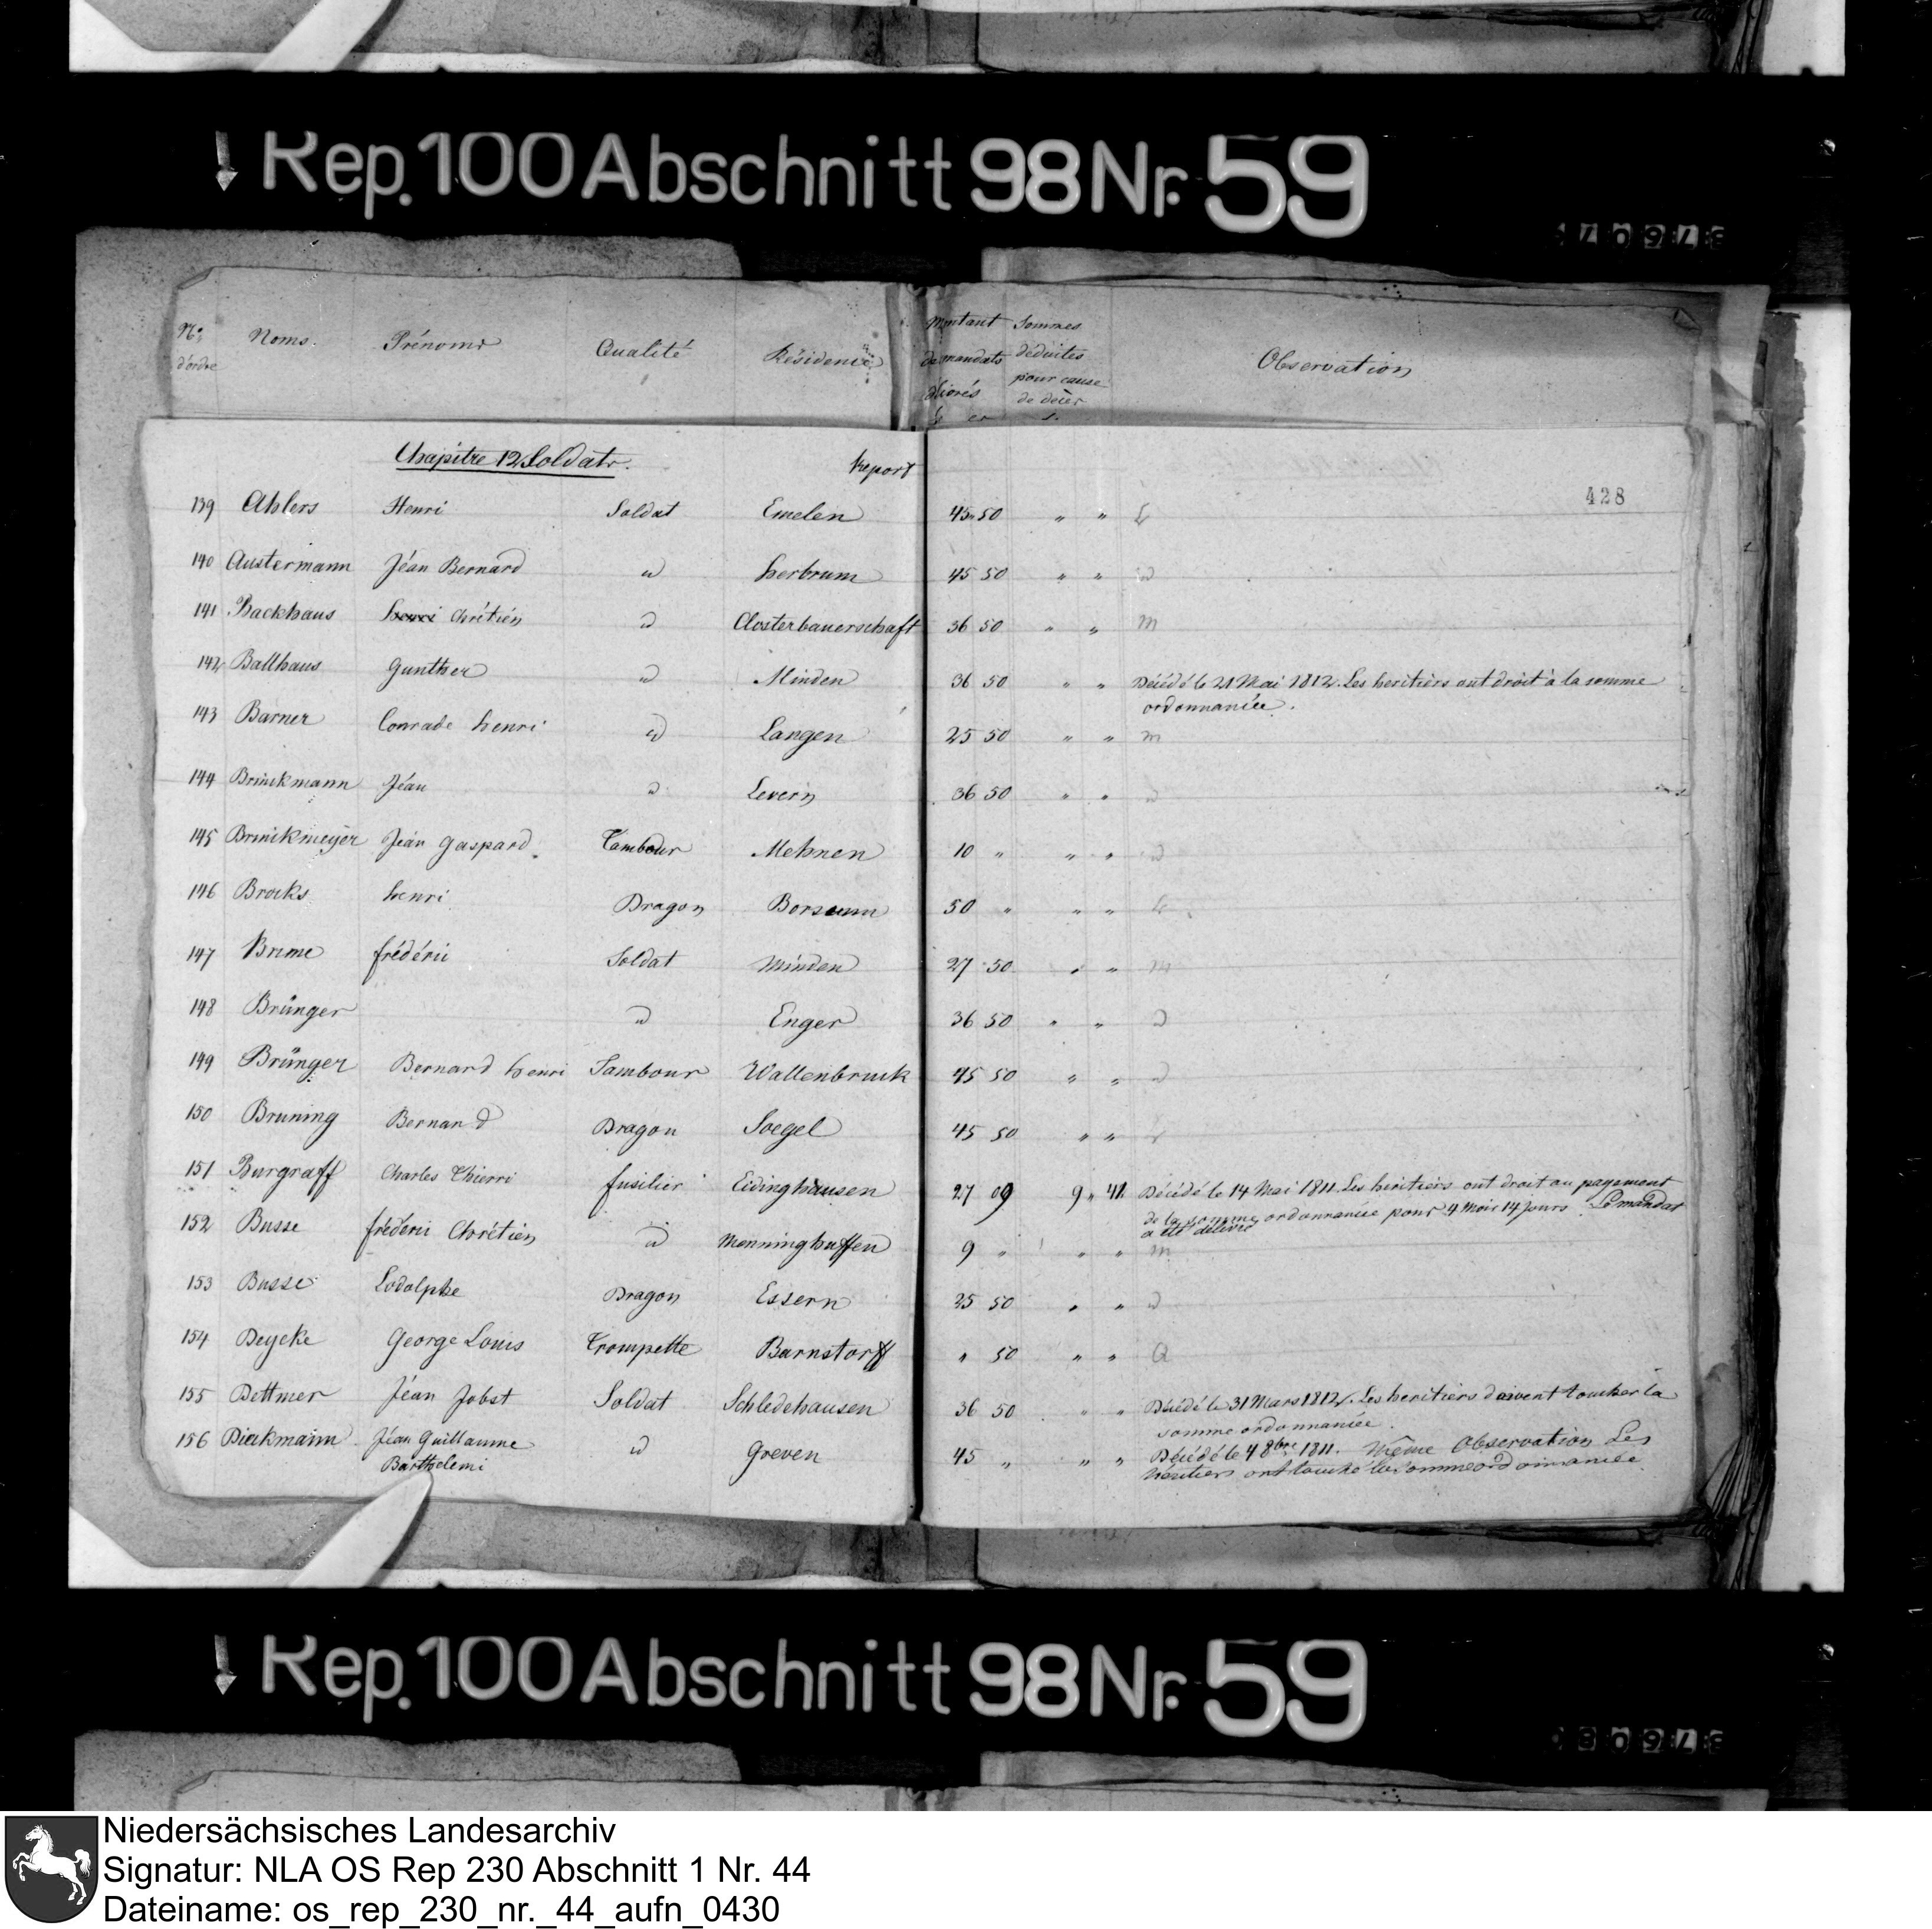 Rep. 100 Abschnitt 98 Nr. 59
No. d'ordre Noms. Prénoms Qualité Résidence Montant de mandats délivrés Sommes déduites pour cause de décès Observation
fr cs
Chapitre 12 Soldats. Report
428
139 Ahlers Henri Soldat Emelen 45 50 " "
140 Austermann Jéan Bernard id herbrum 45 50 " " id
141 Backhaus henri Chrétien id Closterbauerschaft 36 50 " " m
142 Ballhaus Gunther id Minden 36 50 " " Décédé le 21 Mai 1812. Les heritièrs ont droit à la somme
ordonnancée.
143 Barner Conrade henri id Langen 25 50 " " m
144 Brinckmann Jéan id Levern 36 50 " " id
145 Brinckmeyer Jéan Gaspard. Tambour Mehnen 10 " " " id
146 Brocks henri Dragon Borsum 50 " " "
147 Brume frédéric Soldat Minden 27 50 " " m
148 Brünger id Enger 36 50 " " id
149 Brünger Bernard henri Tambour Wallenbruck 45 50 " " id
150 Bruning Bernard Dragon Soegel 45 50 " "
151 Burgraff Charles Thierri fusilier Eidinghausen 27 09 9 " 41 Décédé le 14 Mai 1811. Les héritièrs ont droit au payement
de la somme ordonnancée pour 4 Mois 14 jours. Le mandat
a été délivré
152 Busse fréderic Chrétien id Menninghuffen 9 " " " m
153 Busse Lodolphe Dragon Essern 25 50 " " id
154 Deycke George Louis Trompette Barnstorff " 50 " " Q
155 Dettmer Jéan Jobst Soldat Schledehausen 36 50 " " Décédé le 31 Mars 1812. Les heritièrs doivent toucher la
somme ordonnancée.
156 Dieckmann Jéan Guillaume id Greven 45 " " " Décédé le 4 8bre 1811. Même Observation Les
Barthelemi héritiers ont touché la somme ordonnancée
Rep. 100 Abschnitt 98 Nr. 59
Niedersächsisches Landesarchiv
Signatur: NLA OS Rep 230 Abschnitt 1 Nr. 44
Dateiname: os_rep_230_nr._44_aufn_0430